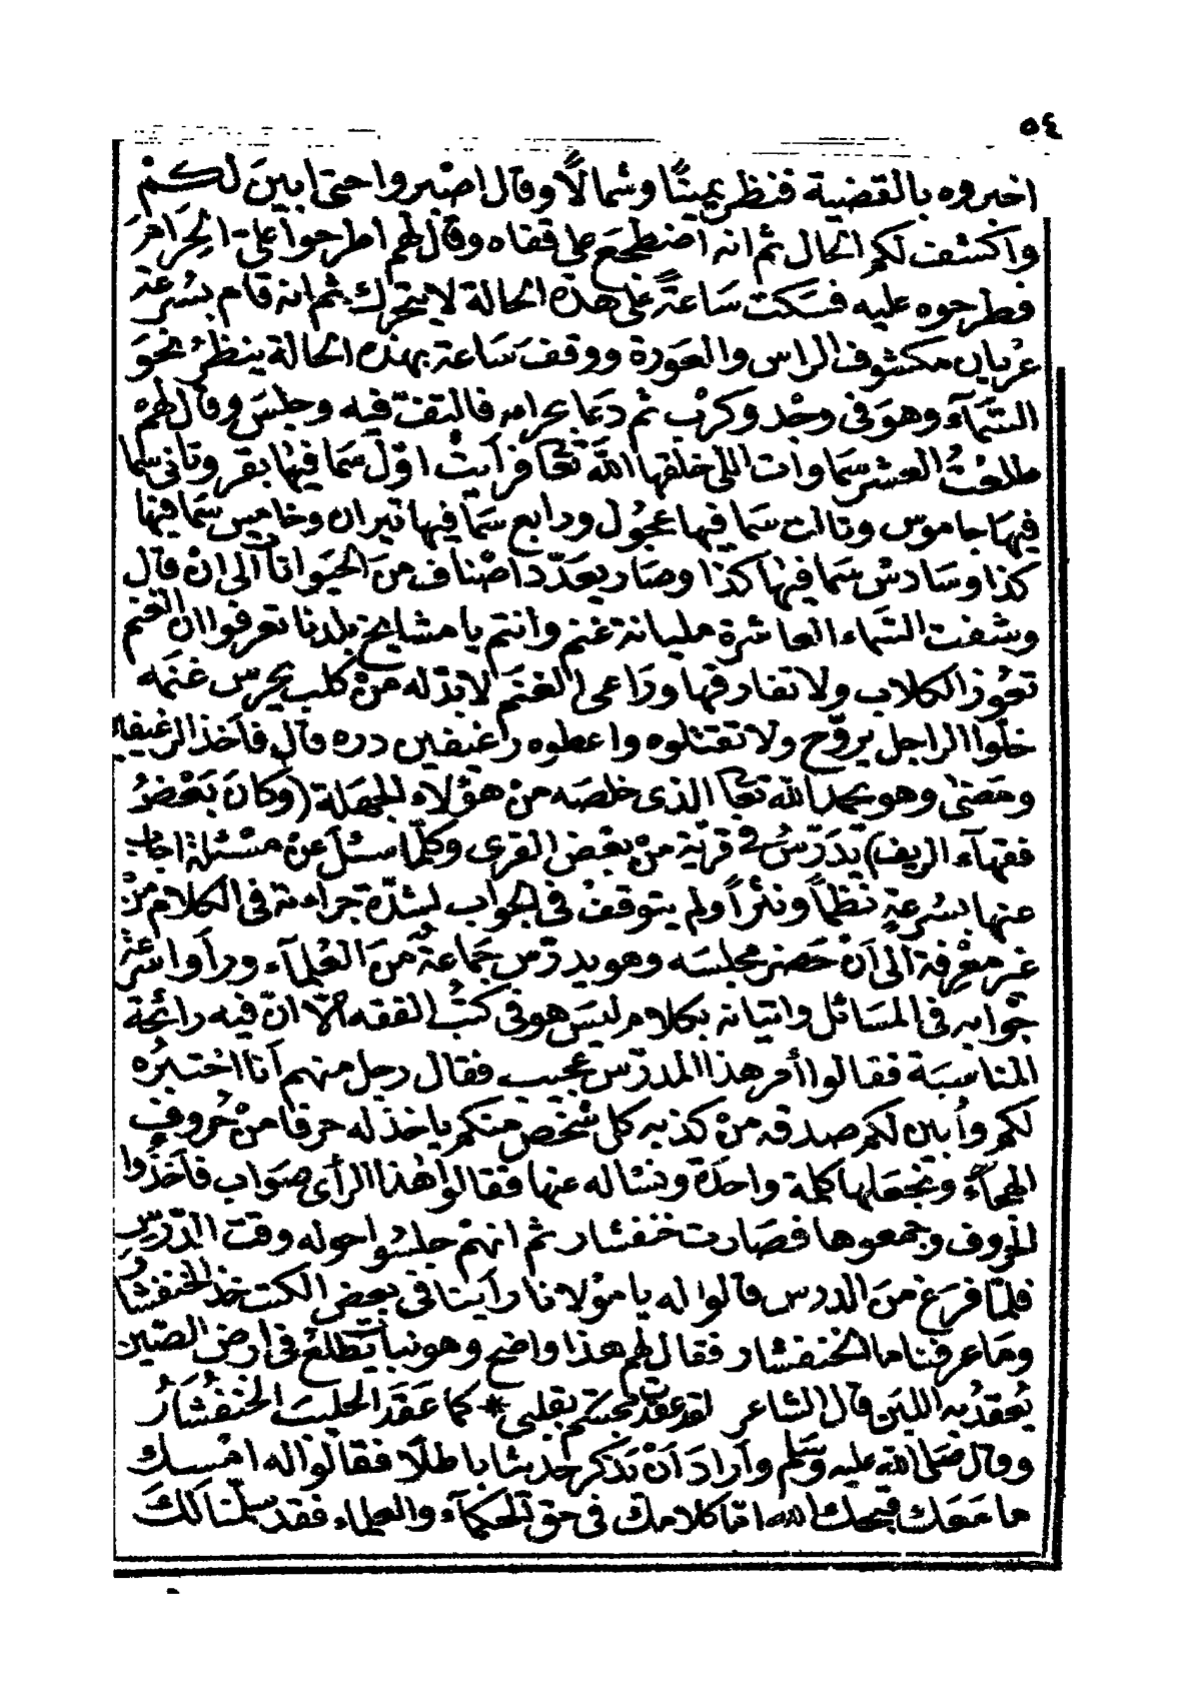 ٥٤
اخبروه بالقضية فنظر يمينًا وشمالًا وقال اصبروا حتى ابينَ لكمْ
واكشف لكم الحال ثم انه اضطجع على قفاه وقال لهم اطرحوا علىَّ الحِرَامَ
فطرحوه عليه فسكت سَاعةً على هذه الحالة لا يتحرك ثم انه قام بسُرعة
عُريان مكشوف الراس والعورة ووقف سَاعة بهذه الحالة ينظرُ نحوَ
السَّمآء وهوَ فى وجْد وكرْب ثم دَعَا بحرامه فالتفّ فيه وجلسَ وقال لهم
طلعْتُ العشر سَماوات اللى خلقها اللّه تعَا فرأيتْ اوّل سَما فيها بقر وتانى سما
فيهَا جاموس وتالت سَما فيها عجُول ورابع سَما فيها تيران وخامس سَما فيها
كذا وسَادسْ سَما فيها كذا وصَار يعَدّد اصْناف منَ الحيَوانات الى انْ قال
وشفت السَّماء العاشرة مليانة غنم وانتم يا مشايخ بلدنا تعرفوا ان الغنم
تعُوز الكلاب ولا تفارقها ورَاعى الغنَم لابدّ له منْ كلب يحرس غنَمه
خلّوا الراجل يروّح ولا تقتلوه واعطوه رغيفين دره قال فأخذ الرغيفين
ومَضىٰ وهو يحمد اللّه تعَا الذى خلصَه منْ هؤلاء الجهَلة (وكانَ بَعْضُ
فقهآء الريف) يدَرّسُ فى قريَة منْ بعْض القرى وكلّما سئلَ عنْ مسْئلة اجاب
عنها بسُرعةٍ نظمًا ونثرًا ولم يتوقفْ فى الجوَاب لشدّة جراءته فى الكلام منْ
غير معْرفة الى اَنْ حَضر مجلسَه وهو يدرّس جَماعةٌ منَ العُلمآء ورأوا سُرعَة
جَوابه فى المسَائل واتيانه بكلام ليسَ هو فى كتُب الفقه الّا انّ فيه رائحَة
المناسَبَة فقالوا أمر هذا المدرّس عجيب فقال رجل منهم أنا اخْتبرُه
لكم وأبين لكم صدقه منْ كذبه كل شخْص منكم ياخذ له حرفا منْ حُروف
الهجآء ونجْعَلها كلمة واحدَة ونسْاله عنها فقالوا هٰذا الرأى صَواب فأخذُوا
الحروف وجمعوها فصَارت خنفشار ثم انهمْ جلسُوا حوله وقتَ الدّرْس
فلمّا فرغ منَ الدرس قالوا له يا موْلانا رأينا فى بعض الكتب خذ الخنفشار
ومَا عرفنا ما الخنفشار فقال لهم هذا واضح وهو نبات يَطلعُ فى ارض الصّين
يُعقدُ به اللبَن قال الشاعر لقد عقدت محبتكم بقلبى * كما عَقدَ الحليبَ الخنفُشَارُ
وقال صَلى اللّه عليه وسَلم وأرادَ اَنْ يذكر حديثا باطلًا فقالوا له امْسك
ما مَعَك قبّحك اللّه امّا كلامك فى حق الحكمآء والعلماء فقد سلّمنا لكَ